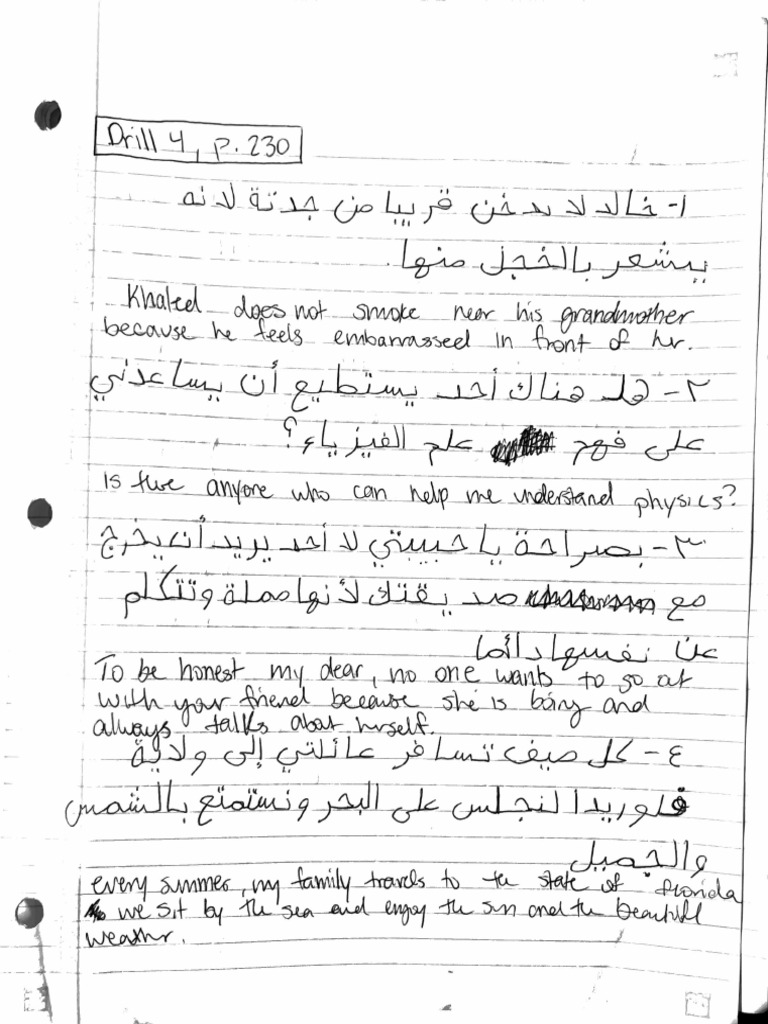 Drill 4, p. 230
١- خالد لا يدخن قريبا من جدتة لانه
يشعر بالخجل منها.
Khaled does not smoke near his grandmother
because he feels embarrasseed in front of her.
٢- هل هناك أحد يستطيع أن يساعدني
على فهم علم الفيزياء؟
is there anyone who can help me understand physics?
٣- بصراحة يا حبيبتي لا أحد يريد أن يخرج
مع صديقتك لأنها مملة وتتكلم
عن نفسها دائما
To be honest my dear, no one wants to go out
with your friend because she is boring and
always talks about herself.
٤- كل صيف تسافر عائلتي إلى ولاية
فلوريدا لنجلس على البحر ونستمتع بالشمس
والجميل
every summer, my family travels to the state of florida
we sit by the sea and enjoy the sun and the beautiful
weather.